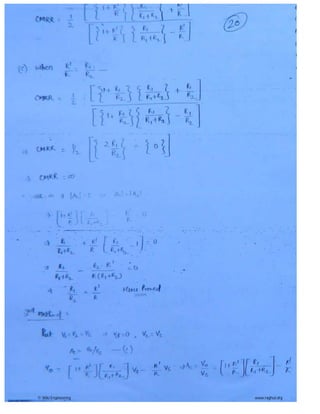 CMRR = 1/2 [{1 + R'/R} {R₁/(R₁+R₂)} + R'/R] / [{1 + R'/R} {R₁/(R₁+R₂)} - R'/R]
20
when R'/R = R₁/R₂
CMRR = 1/2 [{1 + R₁/R₂} {R₁/(R₁+R₂)} + R₁/R₂] / [{1 + R₁/R₂} {R₁/(R₁+R₂)} - R₁/R₂]
⇒ CMRR = 1/2 [{2R₁/R₂} ÷ {0}]
⇒ CMRR = ∞
⇒ R₁/(R₁+R₂) + R'/R [R₁/(R₁+R₂) - 1] = 0
⇒ R₁/(R₁+R₂) - R₂ R'/R(R₁+R₂) = 0
⇒ R₁/R₂ = R'/R Hence Proved
2nd method:
Put V₁=V₂=Vc ⇒ Vd=0,
Ac = Vo/Vc —(1)
Vo = [1+R'/R] [R₁/(R₁+R₂)] Vc - R'/R Vc ⇒ Ac = Vo/Vc = [1+R'/R] [R₁/(R₁+R₂)] - R'/R
© Wiki Engineering
www.raghul.org